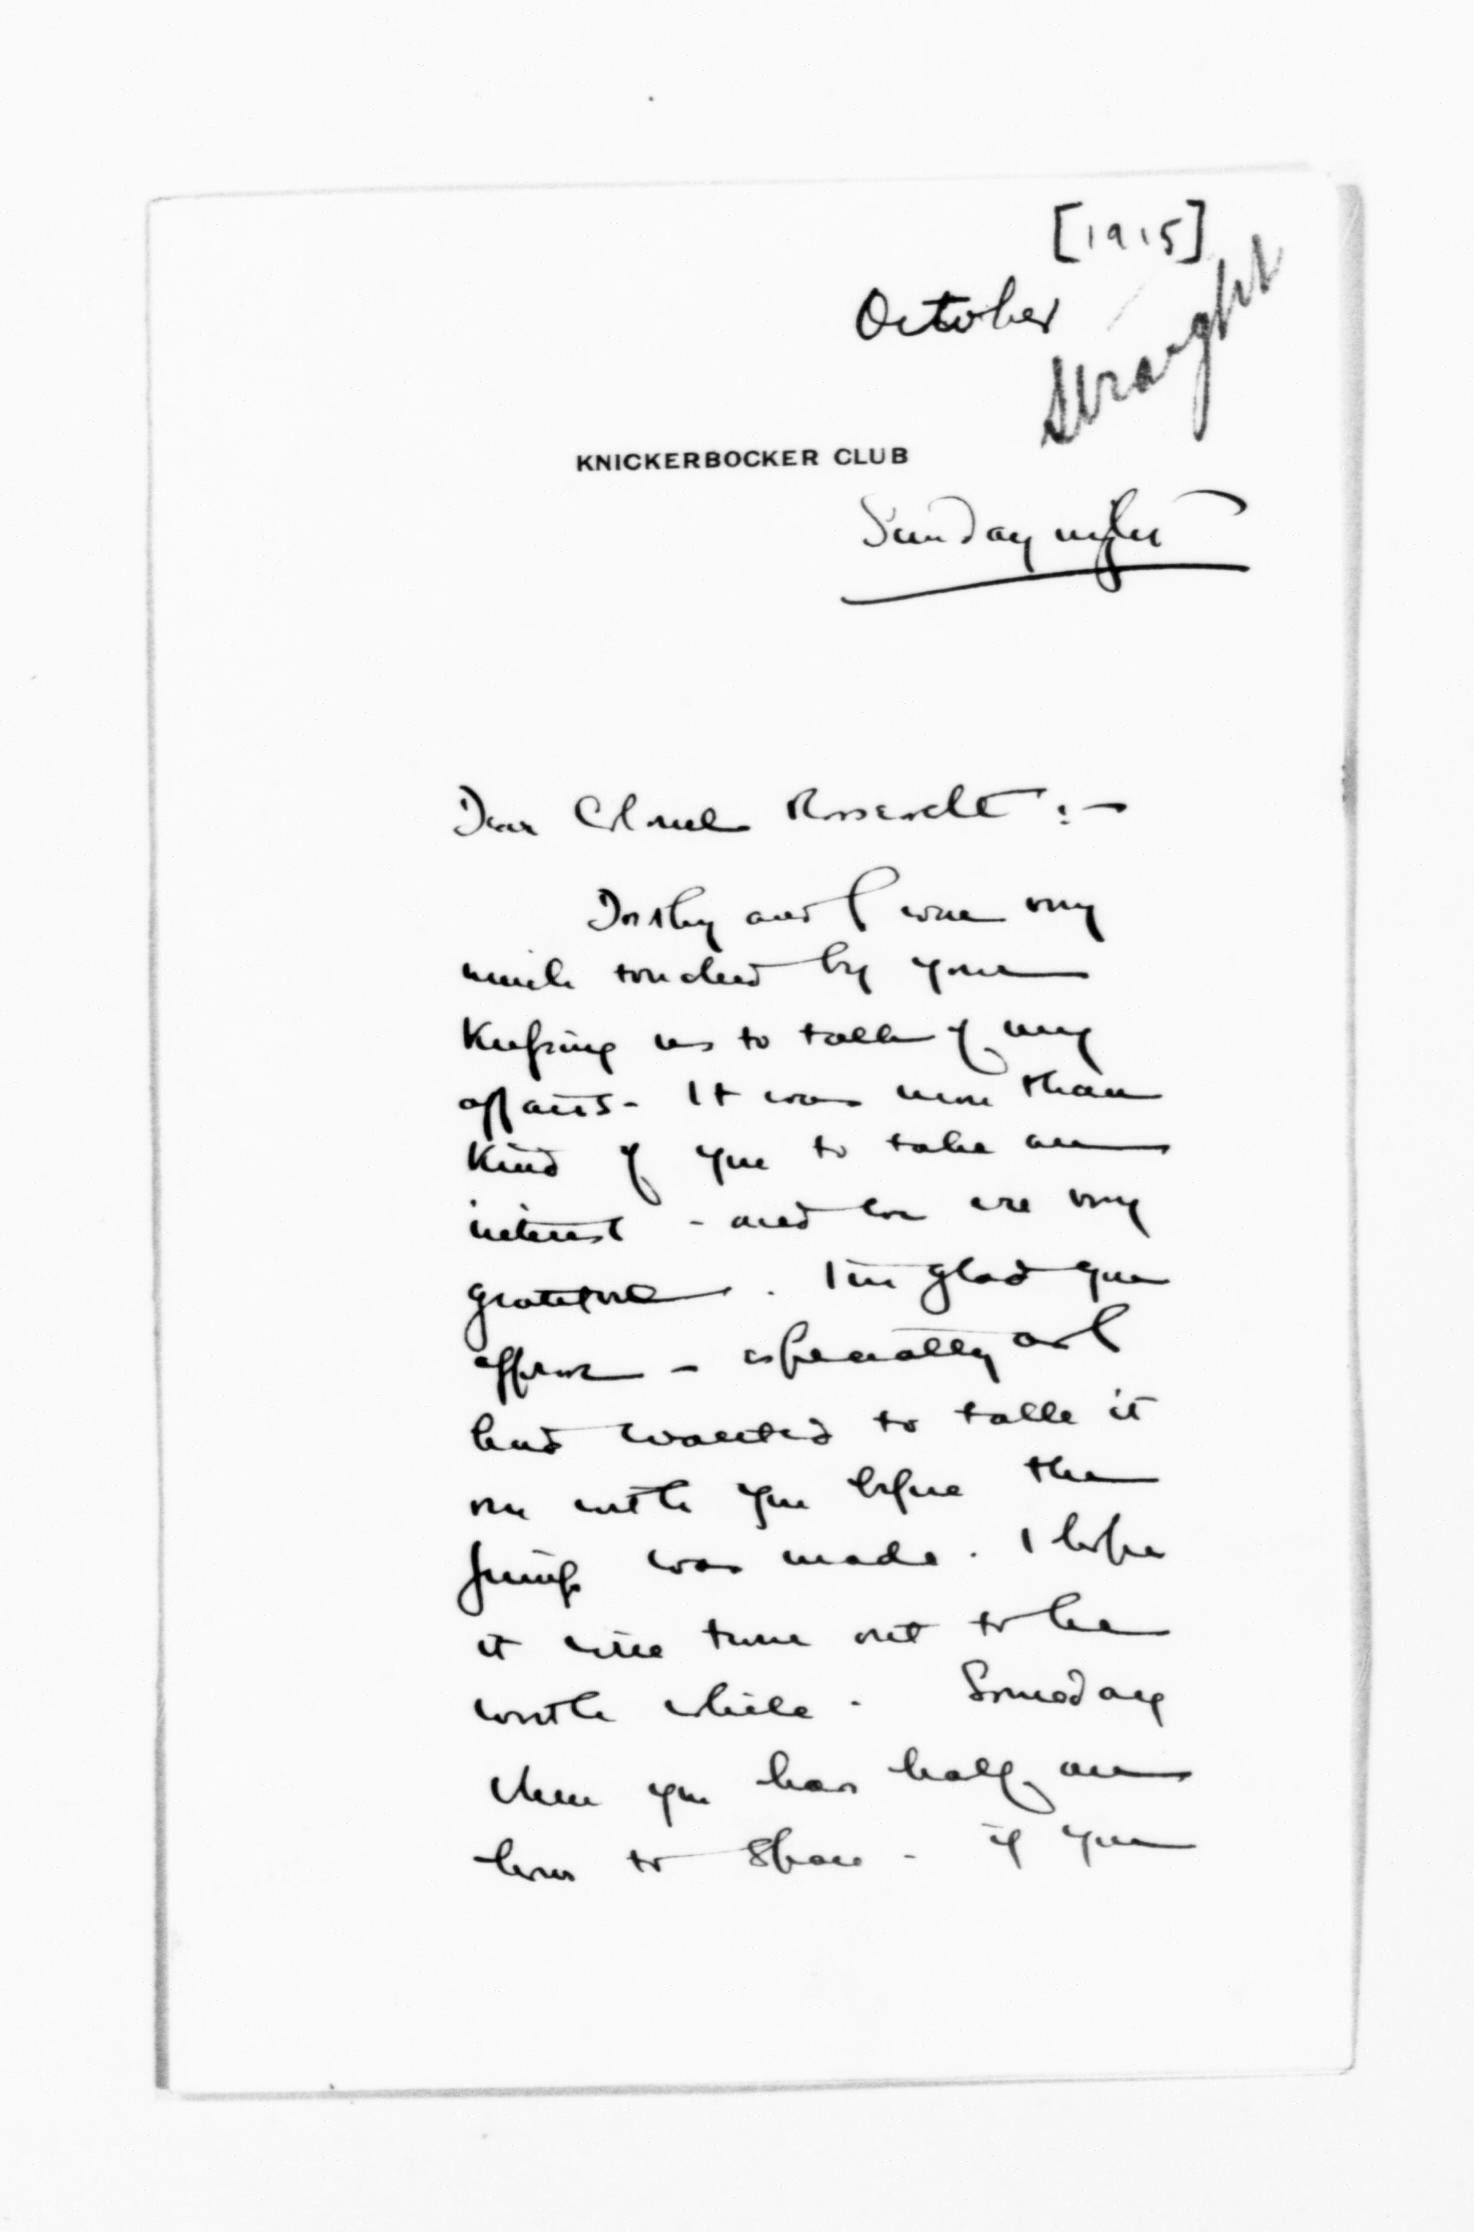 [1915]
October
Straight
KNICKERBOCKER CLUB
Sunday night
Dear Colonel Roosevelt :—
Dorothy and I were very
much touched by your
keeping us to talk of my
affairs - It was more than
kind of you to take an
interest - and we are very
grateful . I'm glad you
approve - especially as I
had wanted to talk it
over with you before the
jump was made . I hope
it will turn out to be
worth while . Someday
when you have half an
hour to spare - if you